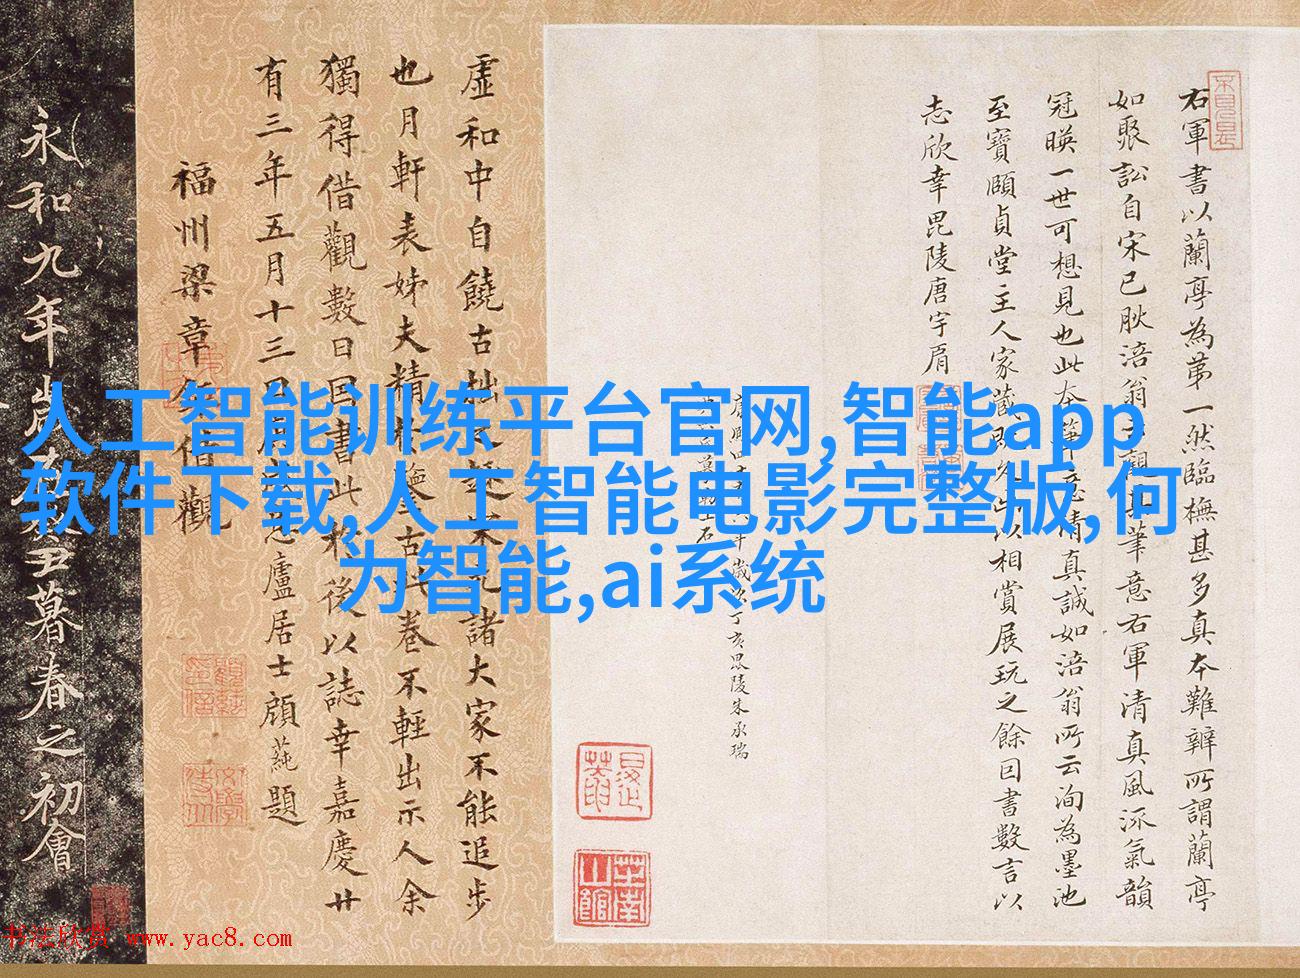 右軍書以蘭亭為第一然臨橅甚多真本難辨所謂蘭亭
如聚訟自宋已
冠暎一世可想見也此本筆意清真誠如涪翁所云洵為墨池
至寶頤貞堂主人家藏
以相賞展玩之餘因書數言以
志欣幸毘陵唐宇肩
丁亥毘陵朱承瑞
虛和中自饒古拙
諸大家不能追步
也月軒表姊夫精
卷不輕出示人余
獨得借觀數日因書此於後以誌幸嘉慶廿
有三年五月十三日
廬居士顧蒓題
福州梁章鉅借觀
永和九年歲在癸丑暮春之初會
人工智能训练平台官网,智能app
软件下载,人工智能电影完整版,何
为智能,ai系统
书法欣赏 www.yac8.com